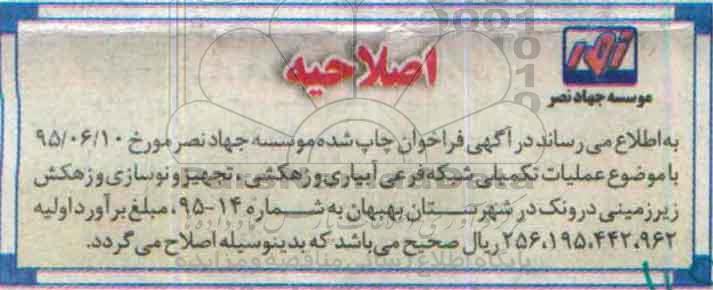 نصر
موسسه جهاد نصر
اصلاحیه
به اطلاع می رساند در آگهی فراخوان چاپ شده موسسه جهاد نصر مورخ ۹۵/۰۶/۱۰
با موضوع عملیات تکمیلی شبکه فرعی آبیاری و زهکشی، تجهیز و نوسازی و زهکش
زیرزمینی درونک در شهرستان بهبهان به شماره ۱۴-۹۵، مبلغ برآورد اولیه
۲۵۶،۱۹۵،۴۴۲،۹۶۲ ریال صحیح می باشد که بدینوسیله اصلاح می گردد.
پایگاه اطلاع رسانی مناقصه و مزایده